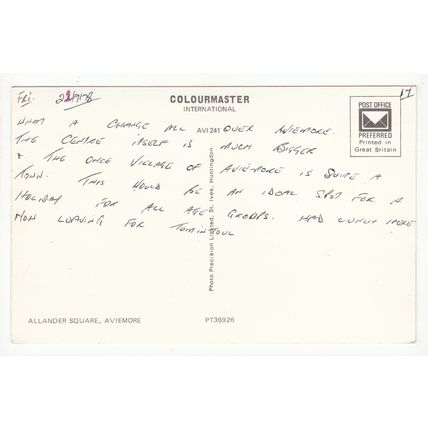 Fri. 22/7/78
17
COLOURMASTER
INTERNATIONAL
POST OFFICE
PREFERRED
Printed in
Great Britain
AVI 241
WHAT A CHANGE ALL OVER AVIEMORE.
THE CENTRE ITSELF IS MUCH BIGGER
& THE ONCE VILLAGE OF AVIEMORE IS QUITE A
TOWN. THIS WOULD BE AN IDEAL SPOT FOR A
HOLIDAY FOR ALL AGE GROUPS. HAD LUNCH HERE
NOW LEAVING FOR TOMINTOUL
Photo Precision Limited, St. Ives, Huntingdon
ALLANDER SQUARE, AVIEMORE
PT36926